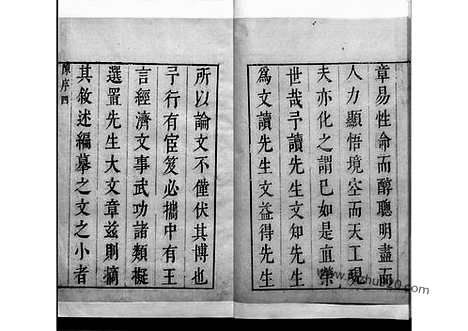 章易性命而醇聰明盡而
人力顯悟境空而天工現
夫亦化之謂已如是直榮
世哉予讀先生文知先生
為文讀先生文益得先生
所以論文不僅伏其博也
予行有宦笈必攜中有王
言經濟文事武功諸類擬
選置先生大文章茲則摘
其敘述編摹之文之小者
陳序 四